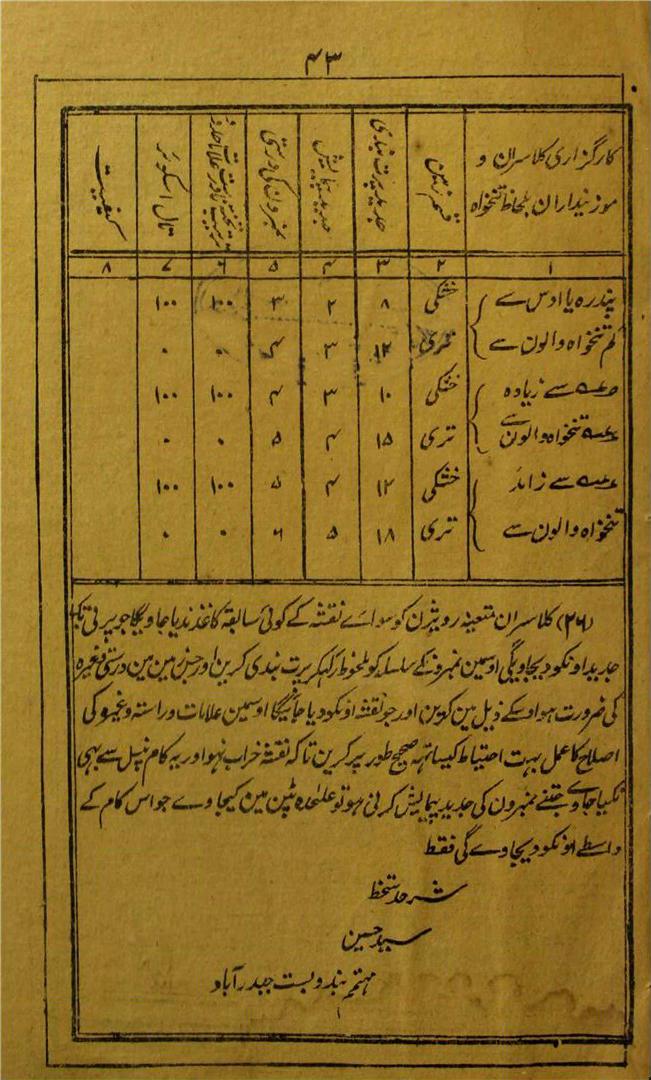 ۴۳
کارگزاری کلاسران و موزنیداران بلحاظ تنخواہ | قسم زمین | جدید پرت بندی | جدید پیمایش | نمبرون کی درستی | تال اسکوئر | کیفیت
۱ | ۲ | ۳ | ۴ | ۵ | ۶ | ۷ | ۸
پندرہ یا اوس سے | خشکی | ۸ | ۲ | ۳ | ۱۰۰ | ۱۰۰
کم تنخواہ والون سے | تری | ۱۲ | ۳ | ۴ | ۰ | ۰
سے زیادہ | خشکی | ۱۰ | ۳ | ۴ | ۱۰۰ | ۱۰۰
تنخواہ والون سے | تری | ۱۵ | ۴ | ۵ | ۰ | ۰
سے زائد | خشکی | ۱۲ | ۴ | ۵ | ۱۰۰ | ۱۰۰
تنخواہ والون سے | تری | ۱۸ | ۵ | ۶ | ۰ | ۰
(۲۶) کلاسران متعینہ رویژن کو سواے نقشہ کے کوئی سابقہ کاغذ ندیا جاویگا جو پرتی بک
جدید اونکو دیجاویگی اوسین نمبرونکے سلسلہ کو ملحوظ رکہکر پرت بندی کرین اور جس زمین مین درستی وغیرہ
کی ضرورت ہو اوسکے ذیل مین کرین اور جو نقشہ اونکو دیا جائیگا اوسمین علامات و راستہ وغیرہ کی
اصلاح کا عمل بہت احتیاط کیساتہہ صحیح طور پر کرین تاکہ نقشہ خراب نہو اور یہ کام پنسل سے بہی
نکیا جاوے جتنے نمبرون کی جدید پیمایش کرنی ہو تو علحٰدہ ٹپن مین کیجاوے جو اس کام کے
واسطے اونکو دیجاوے گی فقط
شرحدستخط
سید حسین
مہتمم بندوبست حیدرآباد
۱